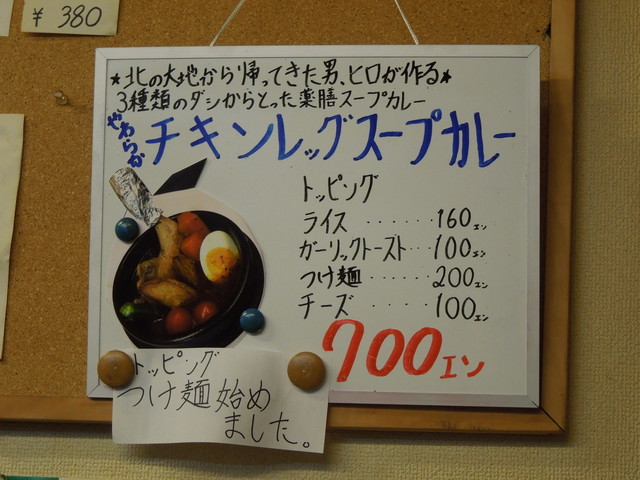 ¥380
★北の大地から帰ってきた男、ヒロが作る★
3種類のダシからとった薬膳スープカレー
やわらか
チキンレッグスープカレー
トッピング
ライス ・・・・・・160エン
ガーリックトースト・・・100エン
つけ麺・・・・・・200エン
チーズ ・・・・100エン
700エン
トッピング
つけ麺始め
ました。